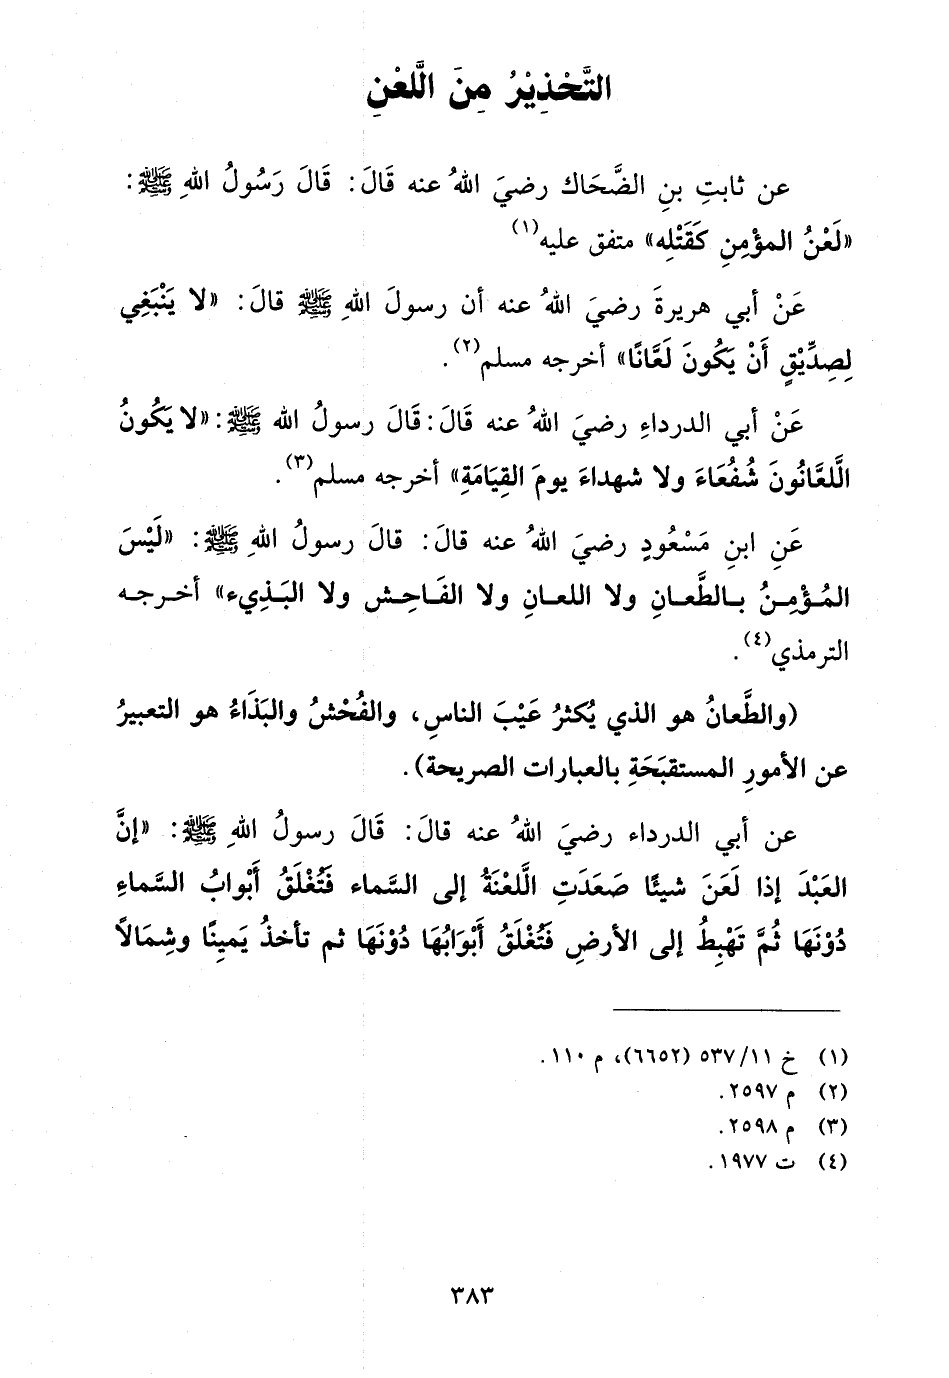 التَّحْذِيْرُ مِنَ اللَّعْنِ
عن ثابتِ بنِ الضَّحَاك رضيَ اللهُ عنه قَالَ: قَالَ رَسُولُ اللهِ ﷺ:
«لَعْنُ المؤْمِنِ كَقَتْلِه» متفق عليه(١)
عَنْ أبي هريرةَ رضيَ اللهُ عنه أن رسولَ اللهِ ﷺ قالَ: «لا يَنْبَغِي
لِصِدِّيْقٍ أَنْ يَكُونَ لَعَّانًا» أخرجه مسلم(٢).
عَنْ أبي الدرداءِ رضيَ اللهُ عنه قَالَ: قَالَ رسولُ الله ﷺ: «لا يَكُونُ
اللَّعَّانُونَ شُفُعَاءَ ولا شهداءَ يومَ القِيَامَةِ» أخرجه مسلم(٣).
عَنِ ابنِ مَسْعُودٍ رضيَ اللهُ عنه قالَ: قالَ رسولُ اللهِ ﷺ: «لَيْسَ
المُؤْمِنُ بالطَّعانِ ولا اللعانِ ولا الفَاحِش ولا البَذِيء» أخرجه
الترمذي(٤).
(والطَّعانُ هو الذي يُكثرُ عَيْبَ الناسِ، والفُحْشُ والبَذَاءُ هو التعبيرُ
عن الأمورِ المستقبَحَةِ بالعبارات الصريحة).
عن أبي الدرداء رضيَ اللهُ عنه قالَ: قَالَ رسولُ اللهِ ﷺ: «إنَّ
العَبْدَ إذا لَعَنَ شيئًا صَعَدَتِ اللَّعْنَةُ إلى السَّماء فَتُغْلَقُ أَبْوابُ السَّماءِ
دُوْنَهَا ثُمَّ تَهْبِطُ إلى الأرضِ فَتُغْلَقُ أَبْوَابُهَا دُوْنَهَا ثم تأخذُ يَمينًا وشِمَالاً
(١) خ ١١/ ٥٣٧ (٦٦٥٢)، م ١١٠.
(٢) م ٢٥٩٧.
(٣) م ٢٥٩٨.
(٤) ت ١٩٧٧.
٣٨٣